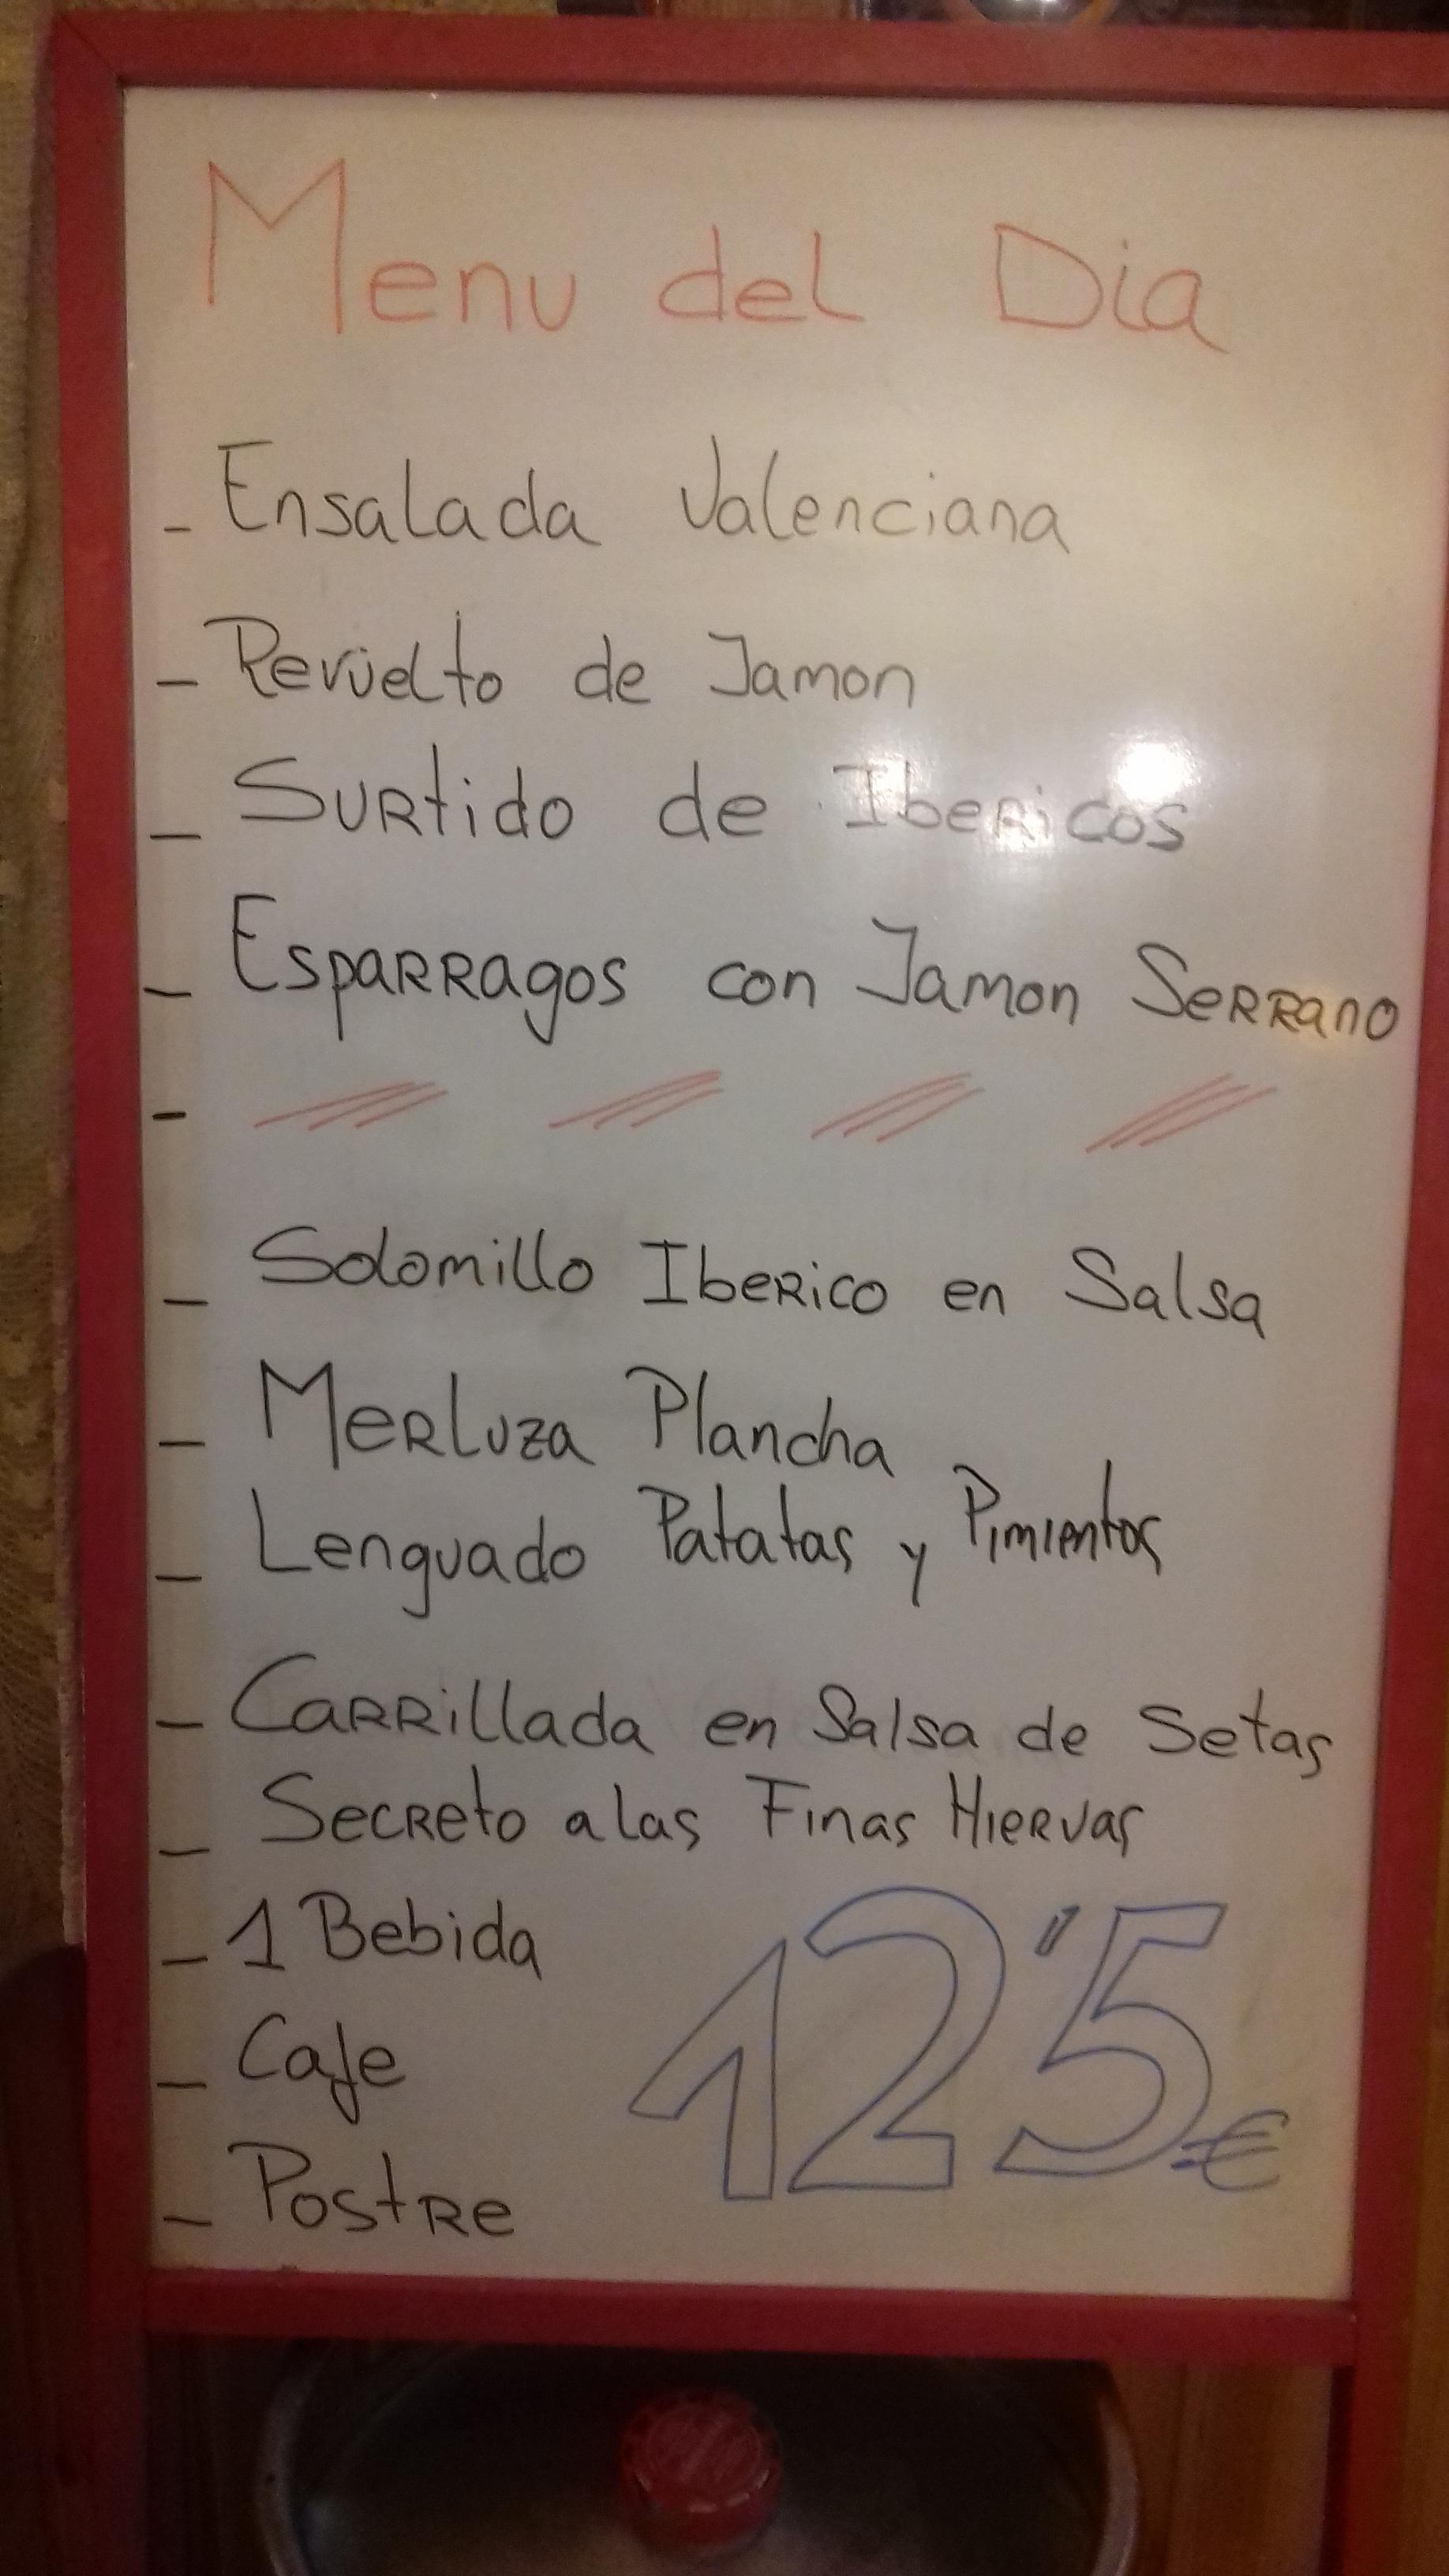 Menu del Dia
- Ensalada Valenciana
- Revuelto de Jamon
- Surtido de Ibericos
- Esparragos con Jamon Serrano
-
- Solomillo Iberico en Salsa
- Merluza Plancha
- Lenguado Patatas y Pimientos
- Carrillada en Salsa de Setas
- Secreto a las Finas Hiervas
- 1 Bebida
- Cafe
- Postre
12'5€